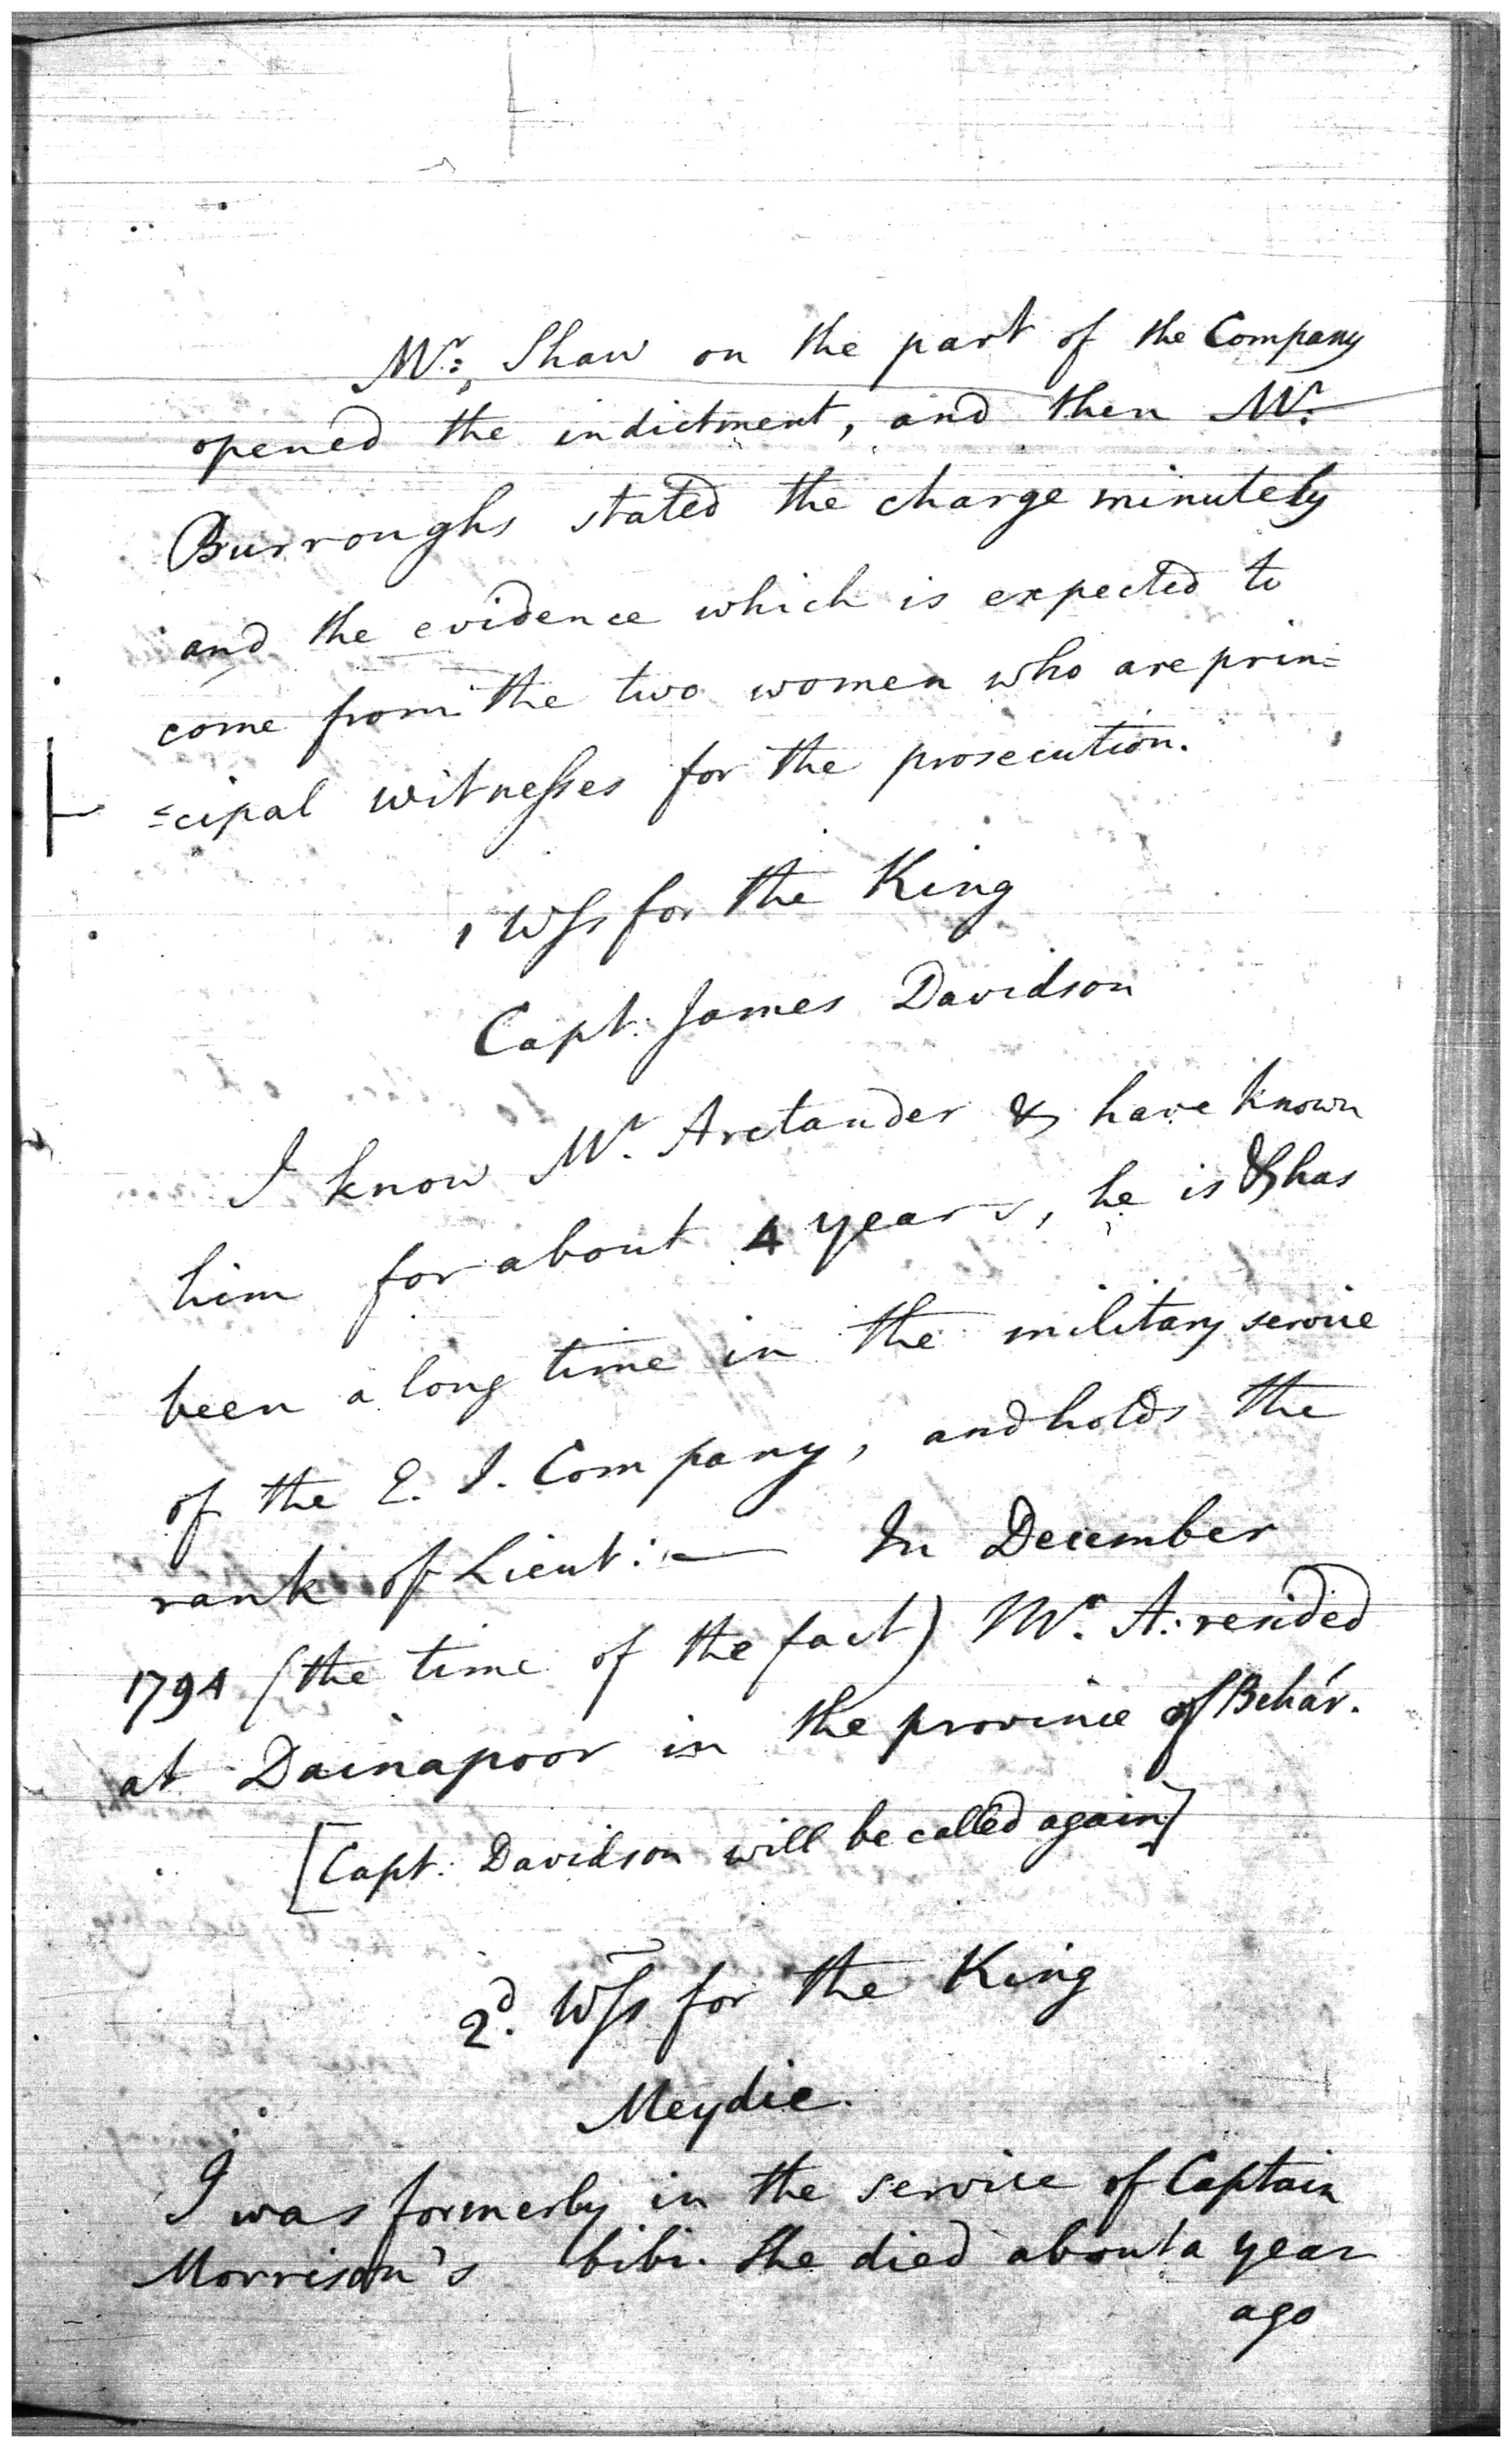 Mr. Shaw on the part of the Company
opened the indictment, and then Mr.
Burroughs stated the charge minutely
and the evidence which is expected to
come from the two women who are prin=
=cipal witnesses for the prosecution.
1 Wss for the King
Capt. James Davidson
I know Mr. Arctander & have known
him for about 4 years, he is & has
been a long time in the military service
of the E. I. Company, and holds the
rank of Lieut: — In December
1794 (the time of the fact) Mr. A. resided
at Dainapoor in the province of Behár.
[Capt. Davidson will be called again]
2d. Wss for the King
Meydie.
I was formerly in the service of Captain
Morrison's bibi. She died about a year
ago